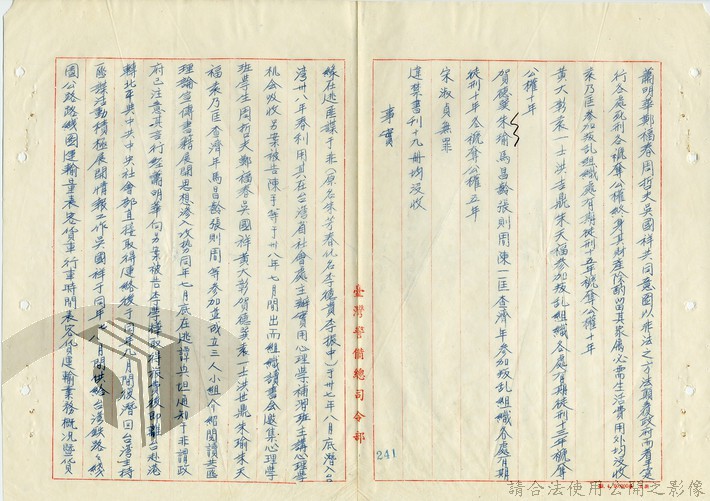 蕭明華鄭福春周哲夫吳國祥共同意圖以非法之方法顛覆政府而着手實
行各處死刑各褫奪公權終身其財產除酌留其家屬必需生活費用外均沒收
朱乃匡參加叛乱組織處有期徒刑十五年褫奪公權十年
黃大彭袁一士洪世鼎朱天福參加叛乱組織各處有期徒刑十三年褫奪
公權十年
賀德巽朱瑜馬昌齡張則周陳一匡查濟年參加叛乱組織各處有期
徒刑十年各褫奪公權五年
宋淑貞無罪
違禁書刊十九冊均沒收
事實
臺灣警備總司令部
241
緣在逃匪諜于非(原名朱芳春化名李德貴李振中)于卅七年八月底潛入台
灣卅八年春利用其在台灣省社會處主辦實用心理學補習班主講心理學
机会吸收另案被告陳平等于卅八年七月間出而組織讀書会邀集心理學
班學生周哲夫鄭福春吳國祥黃大彭賀德巽袁一士洪世鼎朱瑜朱天
福朱乃匡查濟年馬昌齡張則周等參加並成立三人小組介紹閱讀共匪
理論宣傳書籍展開思想滲入攻勢同年七月底在逃諱與坦通知于非謂政
府已注意其言行經蕭明華向另案被告李學驊取得旅費後即離台赴港
轉北平與中共中央社會部直接取得連絡後于同年九月間復潛回台灣主持
匪諜活動積極展開情報工作吳國祥于同年七八月間供給台灣鉄路幹綫
圖公路路綫圖運輸量表客貨車行車時間表客貨運輸業務概況暨貨
請合法使用公開之影像